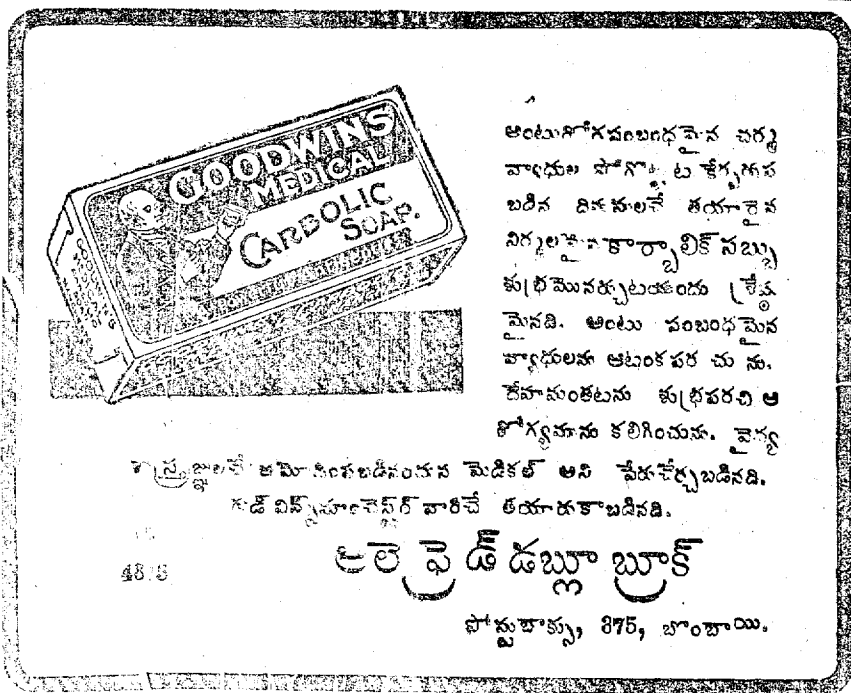 GOODWINS
MEDICAL
CARBOLIC
SOAP.
అంటురోగసంబంధమైన చర్మ
వ్యాధుల పోగొట్టుట కేర్పరుప
బడిన దినుసులచే తయారైన
నిర్మలమైన కార్బాలిక్ సబ్బు
శుభ్రమొనర్చుటయందు శ్రేష్ఠ
మైనది. అంటు సంబంధమైన
వ్యాధులను ఆటంకపర చు ను.
దేహమంతటను శుభ్రపరచి ఆ
రోగ్యమును కలిగించును. వైద్య
శాస్త్రజ్ఞులచే మెడికల్ అని పేరుచేర్చబడినది.
వారిచే తయారుకాబడినది.
ఆల్ఫ్రెడ్ డబ్లూ బ్రూక్
పోస్టుబాక్సు, 375, బొంబాయి.